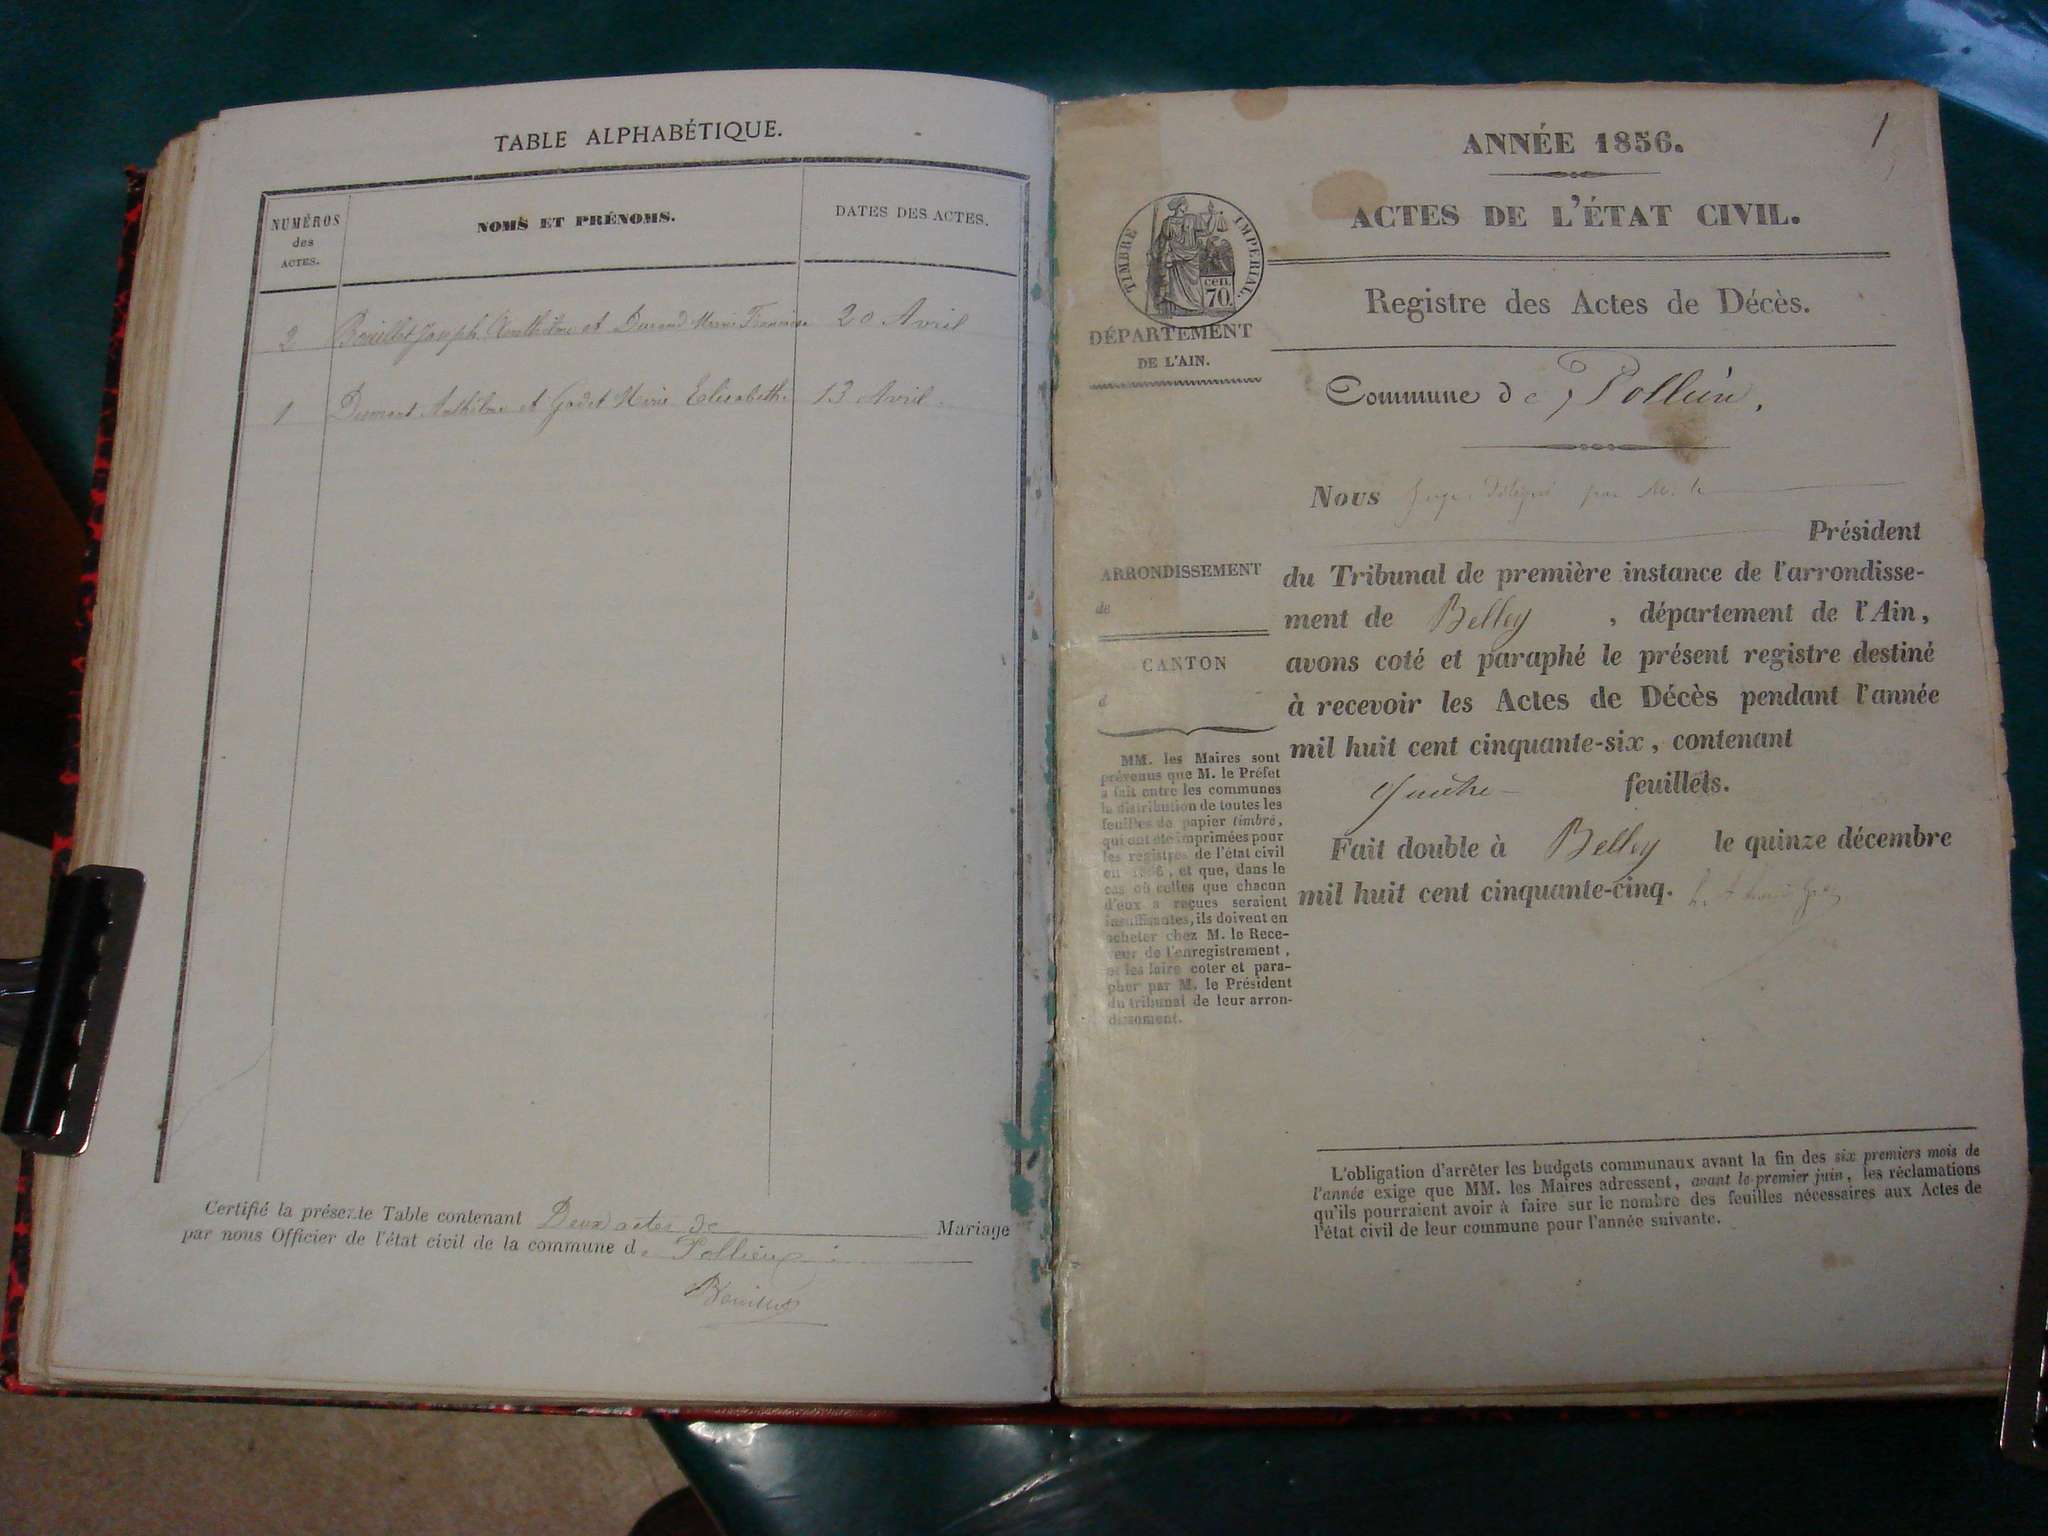 TABLE ALPHABÉTIQUE.
NUMÉROS
des
ACTES.
NOMS ET PRÉNOMS.
DATES DES ACTES.
2 Bouillet Joseph Anthelme et Durand Marie Francoise 20 Avril
1 Dumont Anthelme et Godet Marie Elisabeth 13 Avril.
Certifié la présente Table contenant Deux actes de Mariage
par nous Officier de l'état civil de la commune de Pollieux
1
ANNÉE 1856.
ACTES DE L'ÉTAT CIVIL.
TIMBRE IMPERIAL.
cen.
70.
DÉPARTEMENT
DE L'AIN.
Registre des Actes de Décès.
Commune de Pollieu,
Nous Juge délégué par Mr le
Président
ARRONDISSEMENT
de
CANTON
d
du Tribunal de première instance de l'arrondisse-
ment de Belley, département de l'Ain,
avons coté et paraphé le présent registre destiné
à recevoir les Actes de Décès pendant l'année
mil huit cent cinquante-six, contenant
feuillets.
Fait double à Belley le quinze décembre
mil huit cent cinquante-cinq.
MM. les Maires sont
prévenus que M. le Préfet
a fait entre les communes
la distribution de toutes les
feuilles de papier timbré,
qui ont été imprimées pour
les registres de l'état civil
en 1856, et que, dans le
cas où celles que chacun
d'eux a reçues seraient
insuffisantes, ils doivent en
acheter chez M. le Rece-
veur de l'enregistrement,
et les faire coter et para-
pher par M. le Président
du tribunal de leur arron-
dissement.
L'obligation d'arrêter les budgets communaux avant la fin des six premiers mois de
l'année exige que MM. les Maires adressent, avant le premier juin, les réclamations
qu'ils pourraient avoir à faire sur le nombre des feuilles nécessaires aux Actes de
l'état civil de leur commune pour l'année suivante.